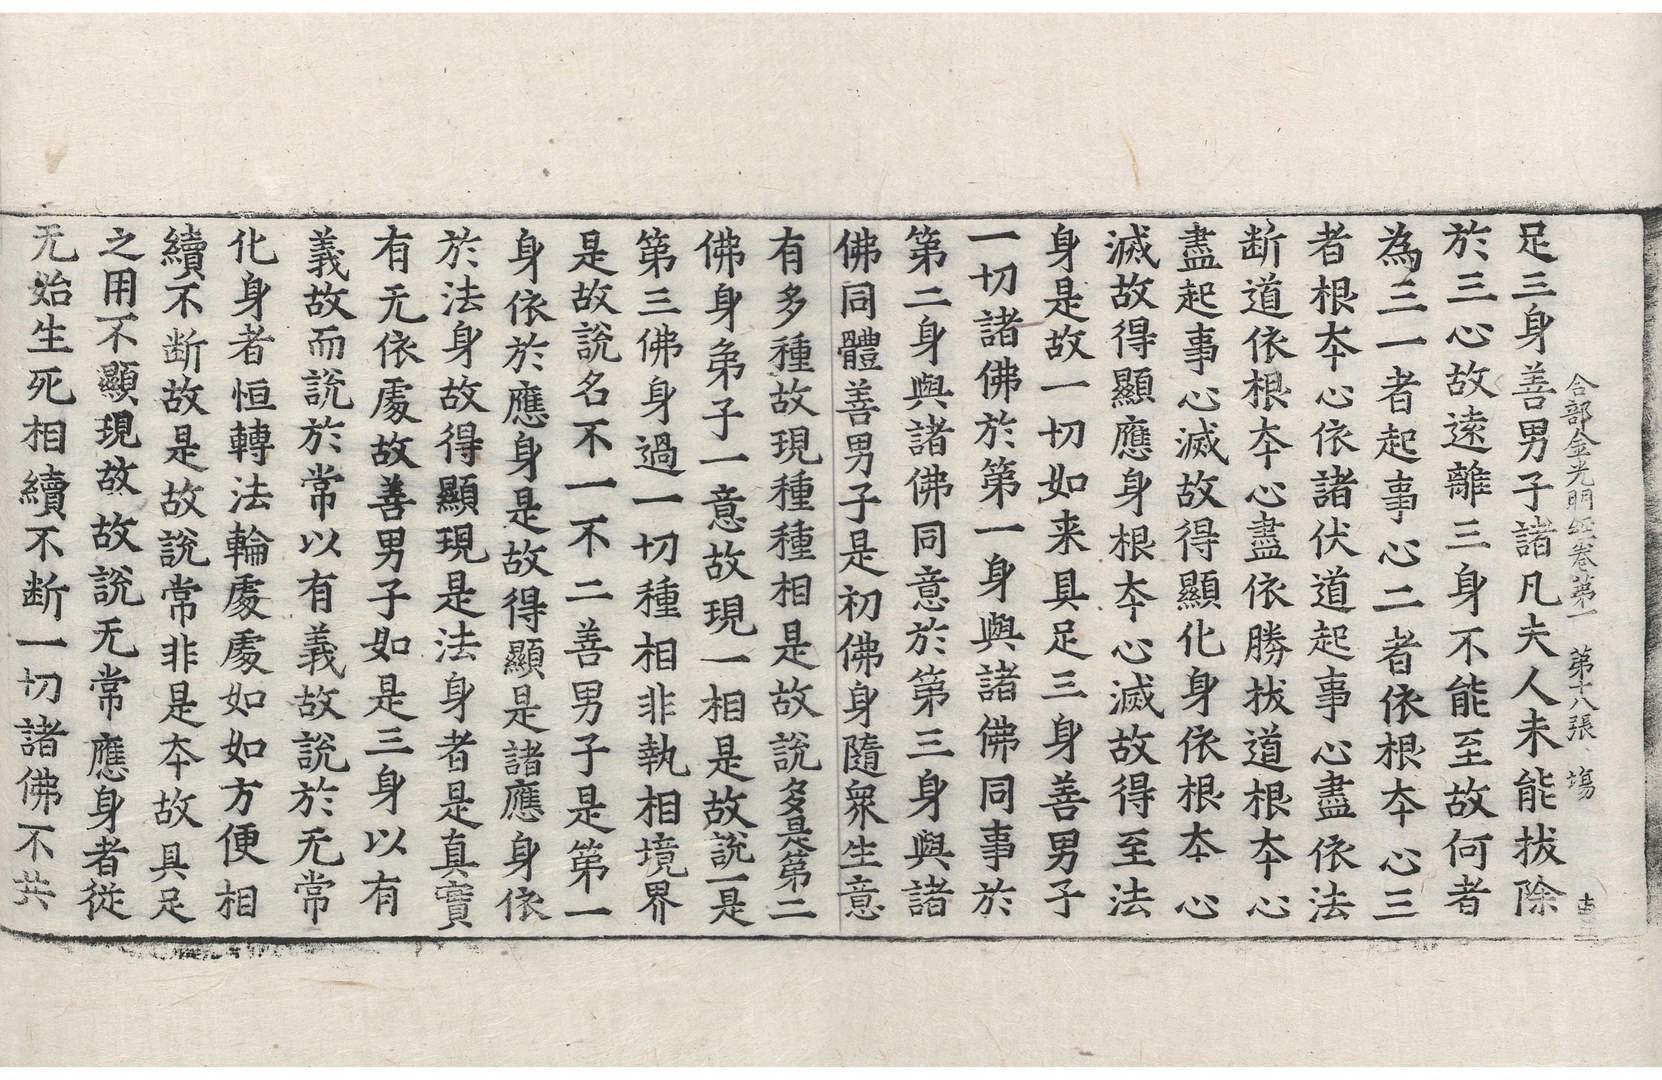 合部金光明経卷第一　第十八張　場
足三身善男子諸凡夫人未能拔除
於三心故逺離三身不能至故何者
為三一者起事心二者依根夲心三
者根夲心依諸伏道起事心盡依法
断道依根夲心盡依勝拔道根夲心
盡起事心滅故得顯化身依根夲心
滅故得顯應身根夲心滅故得至法
身是故一切如来具足三身善男子
一切諸佛於第一身與諸佛同事於
第二身與諸佛同意於第三身與諸
佛同體善男子是初佛身隨衆生意
有多種故現種種相是故說多是第二
佛身弟子一意故現一相是故說一是
第三佛身過一切種相非執相境界
是故說名不一不二善男子是第一
身依於應身是故得顯是諸應身依
於法身故得顯現是法身者是真實
有无依處故善男子如是三身以有
義故而說於常以有義故說於无常
化身者恒轉法輪處處如如方便相
續不断故是故說常非是夲故具足
之用不顯現故故說无常應身者從
无始生死相續不断一切諸佛不共